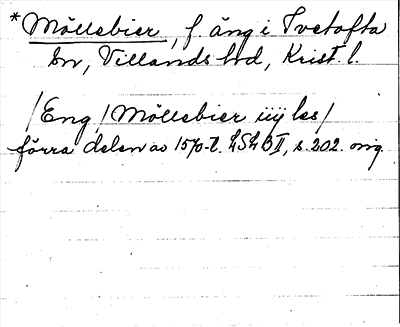 *Möllebier, f. äng i Ivetofta
sn, Villands hd, Krist. l.
/Eng/ Möllebier iiij les/
förra delen av 1570-t. LSLB II, s. 202. orig.